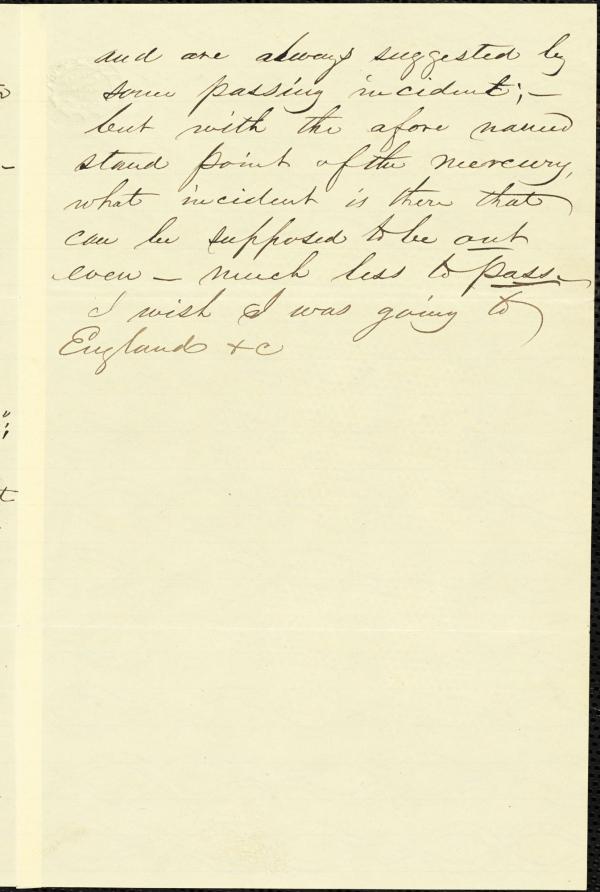 and are always suggested by
some passing incident; —
but with the afore named
stand point of the mercury,
what incident is there that
can be supposed to be out
even — much less to pass.
I wish I was going to
England &c